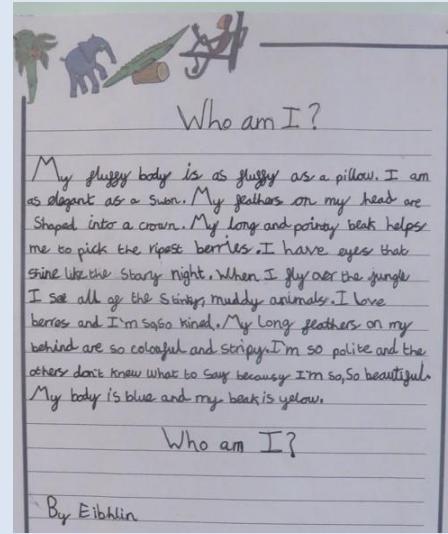 Who am I?
My fluffy body is as fluffy as a pillow. I am
as elegant as a Swon. My feathers on my head are
Shaped into a crown. My long and pointy beak helps
me to pick the ripest berries. I have eyes that
Shine like the Stary night. When I fly over the jungle
I see all of the Stinky, muddy animals. I love
berres and I'm so,so kined. My long feathers on my
behind are so colouful and stripy. I'm so polite and the
others don't know what to Say becausy I'm so, So beautiful.
My body is blue and my beak is yelow.
Who am I?
By Eibhlin